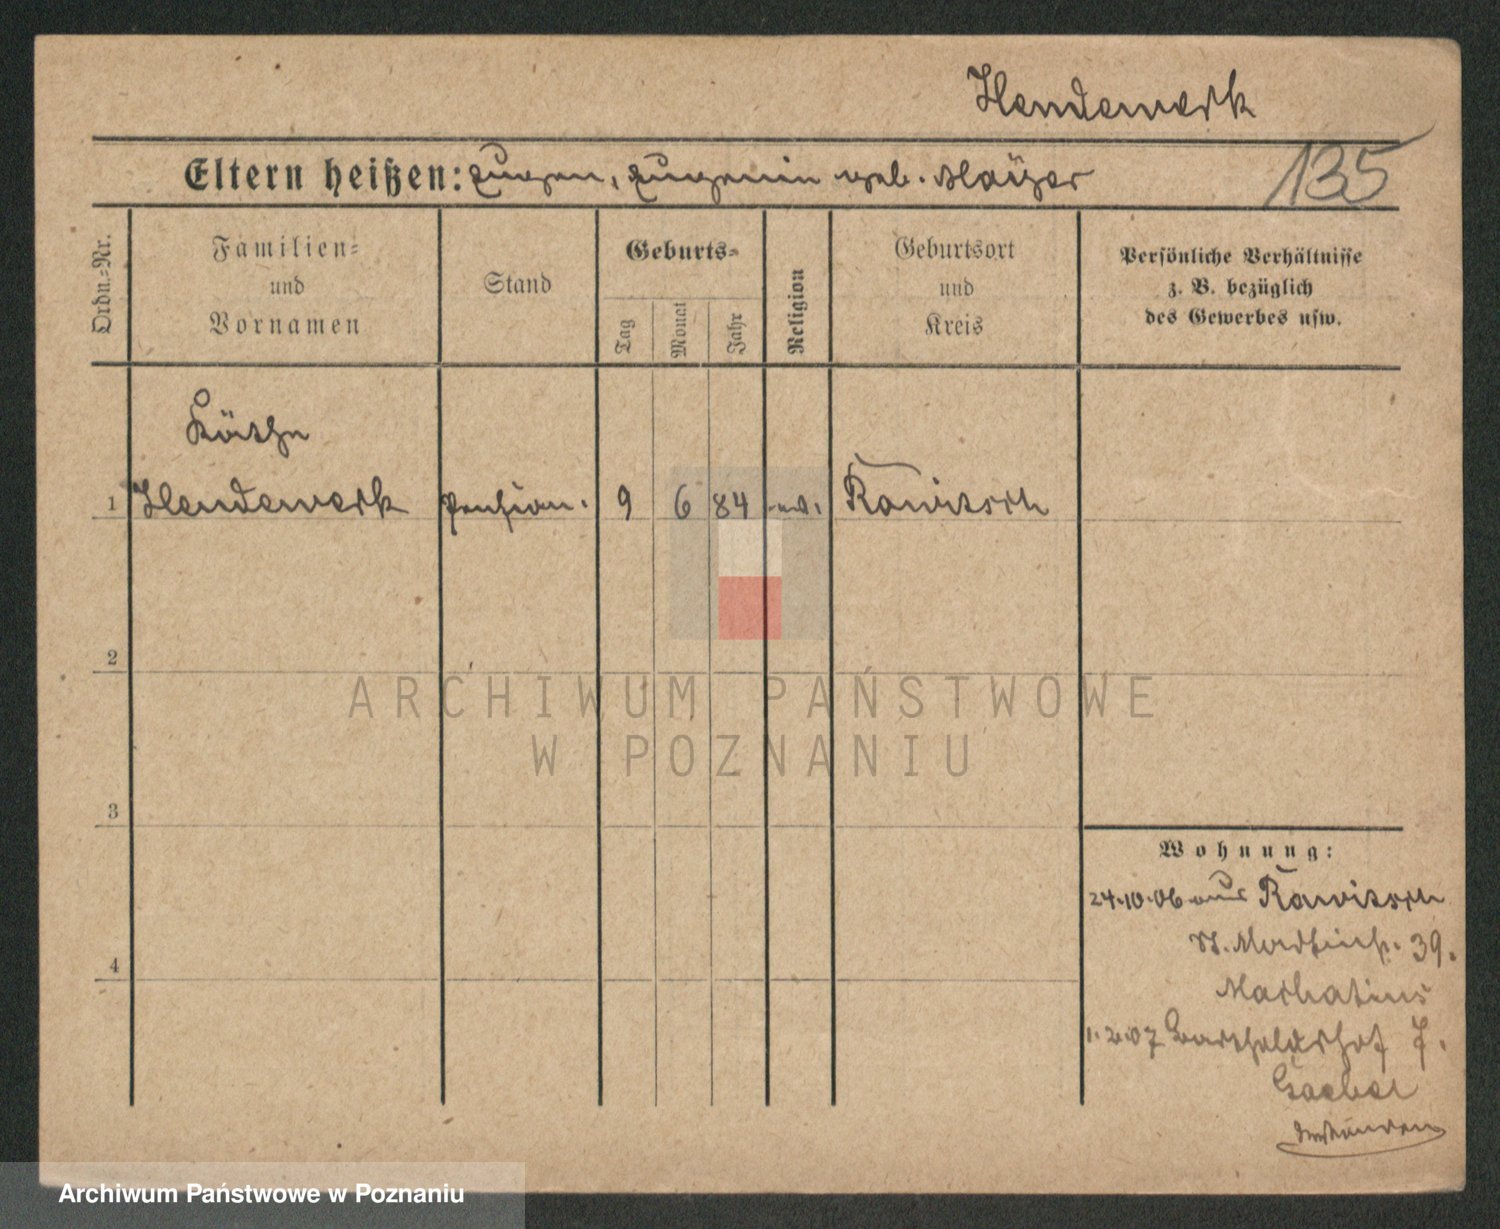 Hendewerk
Eltern heißen: Eugen, Eugenie geb. Mayer
135
Ordn.=Nr.
Familien=
und
Vornamen
Stand
Geburts=
Tag
Monat
Jahr
Religion
Geburtsort
und
Kreis
Persönliche Verhältnisse
z. B. bezüglich
des Gewerbes usw.
Käthe
1 Hendewerk Pension. 9 6 84 Rawitsch
2
3
4
Wohnung:
24.10.06 aus Rawitsch
39.
1.2.07 Bartholdshof 7.
ARCHIWUM PAŃSTWOWE
W POZNANIU
Archiwum Państwowe w Poznaniu